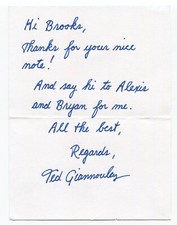 Hi Brooks,
Thanks for your nice
note!
And say hi to Alexis
and Bryan for me.
All the best,
Regards,
Ted Giannoulas